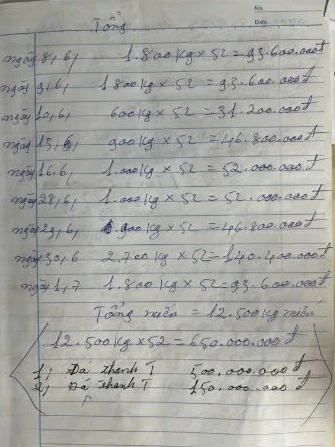 No.
Date
Tổng
ngày 8, 6, 1.800kg x 52 = 93.600.000đ
ngày 9, 6, 1800kg x 52 = 93.600.000đ
ngày 10, 6, 600kg x 52 = 31.200.000đ
ngày 15, 6, 900kg x 52 = 46.800.000đ
ngày 16.6, 1.000kg x 52 = 52.000.000đ
ngày 28, 6, 1.000kg x 52 = 52.000.000đ
ngày 29, 6, 900kg x 52 = 46.800.000đ
ngày 30, 6 2.700kg x 52 = 140.400.000đ
ngày 1, 7 1.800kg x 52 = 93.600.000đ
Tổng miến = 12.500kg miến
12.500kg x 52 = 650.000.000đ
1, Đá thanh T 500.000.000đ
2, Đá thanh T 150.000.000đ